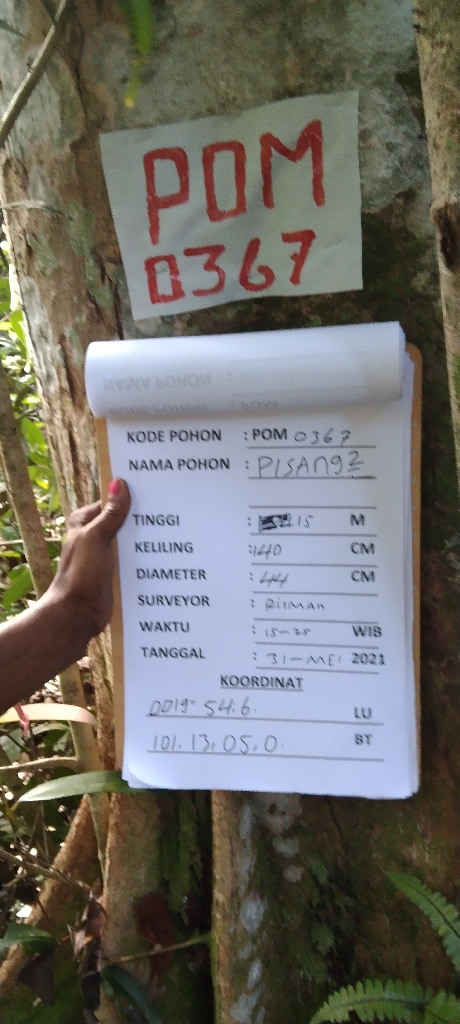 POM
0367
NAMA POHON :
KODE POHON : POM
KODE POHON : POM 0367
NAMA POHON : PISANG2
TINGGI : 15 M
KELILING : 140 CM
DIAMETER : 44 CM
SURVEYOR : RISMAN
WAKTU : 15-25 WIB
TANGGAL : 31-MEI 2021
KOORDINAT
0019 54.6. LU
101. 13. 05. 0. BT